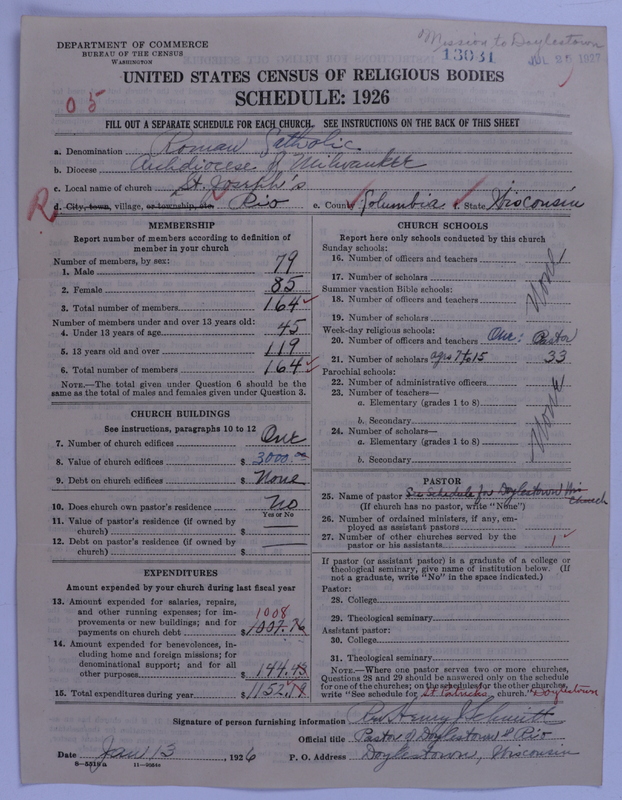 DEPARTMENT OF COMMERCE
BUREAU OF THE CENSUS
WASHINGTON
Mission to Doylestown
13031
JUL 25 1927
UNITED STATES CENSUS OF RELIGIOUS BODIES
SCHEDULE: 1926
05
FILL OUT A SEPARATE SCHEDULE FOR EACH CHURCH. SEE INSTRUCTIONS ON THE BACK OF THIS SHEET
a. Denomination Roman Catholic
b. Diocese Archdiocese of Milwaukee
c. Local name of church St. Joseph's
R d. City, town, village, or township, etc. Rio e. County Columbia f. State Wisconsin
MEMBERSHIP
Report number of members according to definition of
member in your church
Number of members, by sex:
1. Male 79
2. Female 85
3. Total number of members 164
Number of members under and over 13 years old:
4. Under 13 years of age 45
5. 13 years old and over 119
6. Total number of members 164
NOTE.—The total given under Question 6 should be
same as the total of males and females given under Question 3.
CHURCH BUILDINGS
See instructions, paragraphs 10 to 12
7. Number of church edifices One
8. Value of church edifices $ 3000.00
9. Debt on church edifices $ None
10. Does church own pastor's residence No
Yes or No
11. Value of pastor's residence (if owned by
church) $
12. Debt on pastor's residence (if owned by
church) $
EXPENDITURES
Amount expended by your church during last fiscal year
13. Amount expended for salaries, repairs,
and other running expenses; for im-
provements or new buildings; and for
payments on church debt $ 1007.76
1008
14. Amount expended for benevolences, in-
cluding home and foreign missions; for
denominational support; and for all
other purposes $ 144.43
15. Total expenditures during year $ 1152.19
CHURCH SCHOOLS
Report here only schools conducted by this church
Sunday schools:
16. Number of officers and teachers
17. Number of scholars
Summer vacation Bible schools:
18. Number of officers and teachers
19. Number of scholars
None
Week-day religious schools:
20. Number of officers and teachers One: Pastor
21. Number of scholars ages 7 to 15 33
Parochial schools:
22. Number of administrative officers
23. Number of teachers—
a. Elementary (grades 1 to 8)
b. Secondary
24. Number of scholars—
a. Elementary (grades 1 to 8)
b. Secondary
None
PASTOR
25. Name of pastor See Schedule for Doylestown this Church
(If church has no pastor, write "None")
26. Number of ordained ministers, if any, em-
ployed as assistant pastors
27. Number of other churches served by the
pastor or his assistants 1
If pastor (or assistant pastor) is a graduate of a college or
theological seminary, give name of institution below. (If
not a graduate, write "No" in the space indicated.)
Pastor:
28. College
29. Theological seminary
Assistant pastor:
30. College
31. Theological seminary
NOTE.—Where one pastor serves two or more churches,
Questions 28 and 29 should be answered only on the schedule
for one of the churches; on the schedules for the other churches,
write "See schedule for St Patricks church." Doylestown
Signature of person furnishing information Rev Henry J Schmitt
Official title Pastor of Doylestown & Rio
Date Jan 13, 1926 P. O. Address Doylestown, Wisconsin